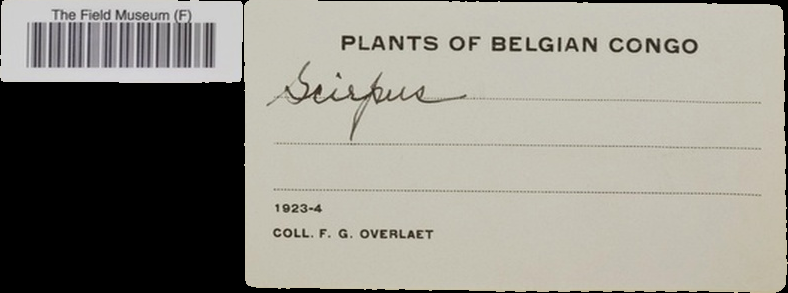 The Field Museum (F)
PLANTS OF BELGIAN CONGO
Scirpus
1923-4
COLL. F. G. OVERLAET